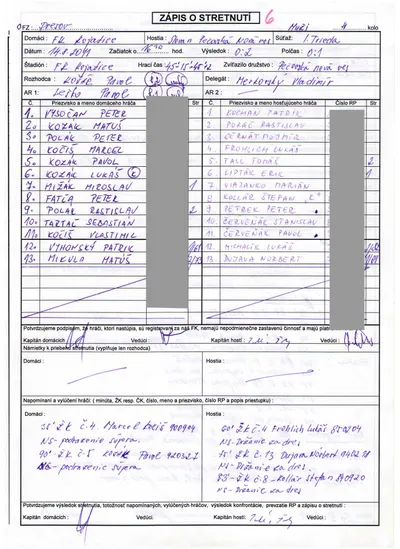 ZÁPIS O STRETNUTÍ 6
OFZ: Prešov Muži 4 kolo
Domáci: FK Kojatice Hostia: Pečovská Nová Ves Súťaž: I. Trieda
Dátum: 14.8.2011 Začiatok o 16:30 Výsledok 0:2 Polčas 0:1
Štadión: FK Kojatice Hrací čas 45-15-45+2 Zvíťazilo družstvo: Pečovská Nová Ves
Rozhodca: Pavol Delegát: Merkovský Vladimír
AR 1: Leško Pavol AR 2:
Č. Priezvisko a meno domáceho hráča Str Č. Priezvisko a meno hosťujúceho hráča Číslo RP Str
1. VYSOČAN PETER 1. KUCHÁR PATRIK
2. KOZÁK MATÚŠ 2. RASTISLAV
3. POLÁK PETER 3. ČERNÁK
4. KOČIŠ MARCEL 4. FRÖHLICH LUKÁŠ
5. KOZÁK PAVOL 5. TALL TOMÁŠ 2
6. KOZÁK LUKÁŠ C 6. LIPTÁK ERIK 1
7. MIŽÁK MIROSLAV 1 7. MARIÁN
8. FATĽA PETER 8. KOLLÁR ŠTEFAN "K"
9. POLÁK RASTISLAV 2 9. PETREK PETER
10. TARTAĽ SEBASTIÁN 10. ČERVEŇÁK STANISLAV
11. KOČIŠ VLASTIMIL 11. ČERVEŇÁK PAVOL
12. VÝHONSKÝ PATRIK 12. MICHALÍK LUKÁŠ
13. MIKULA MATÚŠ 13. DUJAVA NORBERT
Potvrdzujeme podpisom, že hráči, ktorí nastúpia, sú registrovaní za náš FK, nemajú nepodmienečne zastavenú činnosť a majú
Kapitán domácich: Vedúci: Kapitán hostí: Vedúci:
Námietky k priebehu stretnutia (vyplňuje len rozhodca)
Domáci: Hostia:
Napomínaní a vylúčení hráči: ( minúta, ŽK resp. ČK, číslo, meno a priezvisko, číslo RP a popis priestupku):
Domáci: Hostia:
35' ŽK č.4 Marcel Kočiš 900904
NŠ-podrazenie súpera.
90' ŽK č.5 Kozák Pavol
NŠ-podrazenie súpera
60' ŽK č.4 Fröhlich Lukáš
NŠ-Držanie za dres
75' ŽK č.13 Dujava Norbert
NŠ-Držanie za dres.
83' ŽK č.8 - Kollár Štefan 840920
NŠ-Držanie za dres
Potvrdzujeme výsledok stretnutia, totožnosť napomínaných, vylúčených hráčov, výsledok konfrontácie, prevzatie RP a zápisu o stretnutí:
Kapitán domácich: Vedúci: Kapitán hostí: Vedúci: